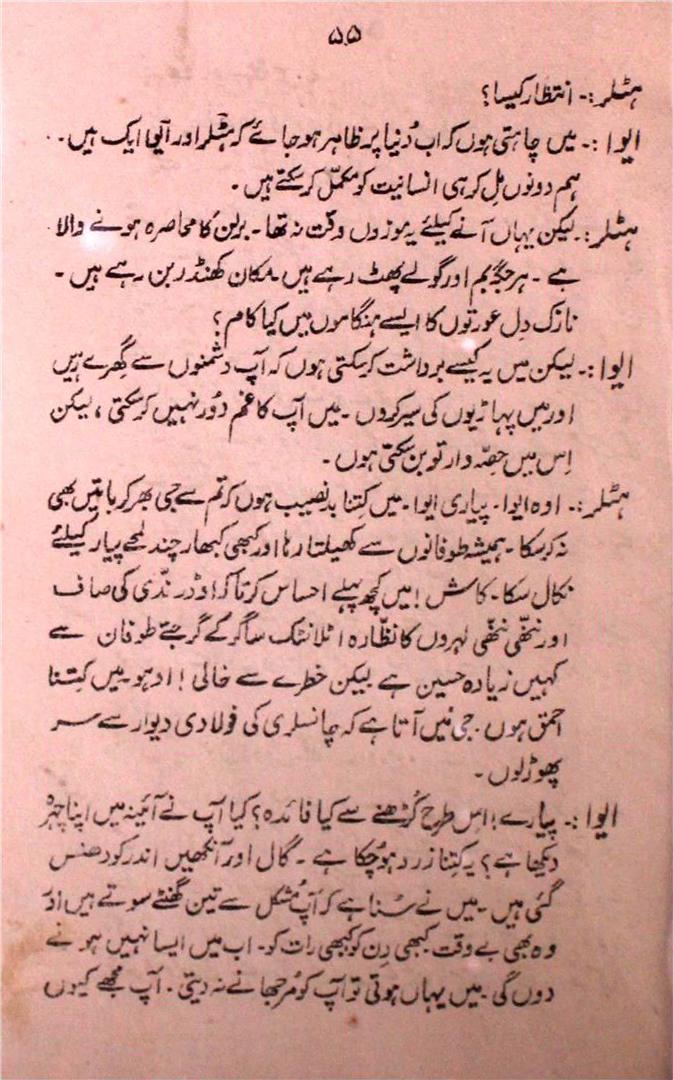 ۵۵
ہٹلر:۔ انتظار کیسا؟
ایوا:۔ میں چاہتی ہوں کہ اب دُنیا پر ظاہر ہو جائے کہ ہٹلر اور آیوا ایک ہیں۔
ہم دونوں مِل کر ہی انسانیت کو مکمّل کر سکتے ہیں۔
ہٹلر:۔ لیکن یہاں آنے کیلئے یہ موزوں وقت نہ تھا۔ برلن کا محاصرہ ہونے والا
ہے۔ ہر جگہ بم اور گولے پھٹ رہے ہیں۔ مکان کھنڈر بن رہے ہیں۔
نازک دِل عورتوں کا ایسے ہنگاموں میں کیا کام؟
ایوا:۔ لیکن میں یہ کیسے برداشت کر سکتی ہوں کہ آپ دشمنوں سے گِھرے رہیں
اور میں پہاڑیوں کی سیر کروں۔ میں آپ کا غم دُور نہیں کر سکتی، لیکن
اِس میں حِصّہ دار تو بن سکتی ہوں۔
ہٹلر:۔ اوہ ایوا۔ پیاری ایوا۔ میں کِتنا بدنصیب ہوں کہ تم سے جی بھر کر باتیں بھی
نہ کر سکا۔ ہمیشہ طوفانوں سے کھیلتا رہا اور کبھی کبھار چند لمحے پیار کیلئے
نکال سکا۔ کاش! میں کچھ پہلے احساس کرتا کہ اوڈر ندّی کی صاف
اور ننھّی ننھّی لہروں کا نظّارہ اٹلانٹک ساگر کے گرجتے طوفان سے
کہیں زیادہ حسین ہے لیکن خطرے سے خالی! اوہو۔ میں کِتنا
احمق ہوں۔ جی میں آتا ہے کہ چانسلری کی فولادی دیوار سے سر
پھوڑ لوں۔
ایوا:۔ پیارے! اِس طرح کُڑھنے سے کیا فائدہ؟ کیا آپ نے آئینہ میں اپنا چہرہ
دیکھا ہے؟ یہ کِتنا زرد ہو چُکا ہے۔ گال اور آنکھیں اندر کو دھنس
گئی ہیں۔ میں نے سُنا ہے کہ آپ مُشکل سے تین گھنٹے سوتے ہیں اور
وہ بھی بے وقت کبھی دِن کو کبھی رات کو۔ اب میں ایسا نہیں ہونے
دوں گی۔ میں یہاں ہوتی تو آپ کو مُرجھانے نہ دیتی۔ آپ مجھے کیوں